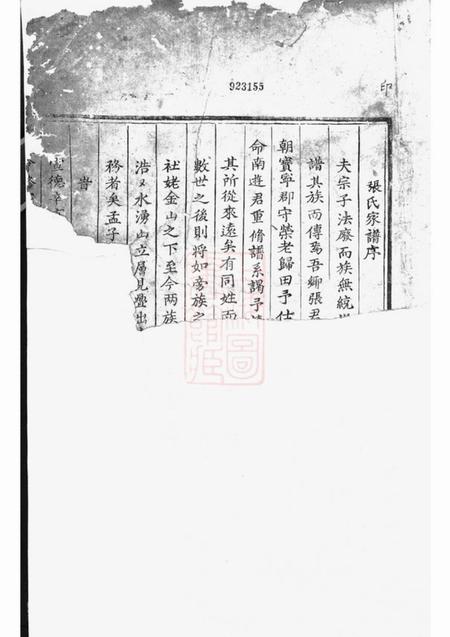 923155
印
張氏家譜序
夫宗子法廢而族無統
譜其族而傳焉吾鄉張君
朝寳寧郡守榮老歸田予仕
命南遊君重脩譜系謁予
其所從來遠矣有同姓而
數世之後則将如旁族之
社姥金山之下至今两族
浩又水湧山立層見疊出
務者矣孟子
旹
德